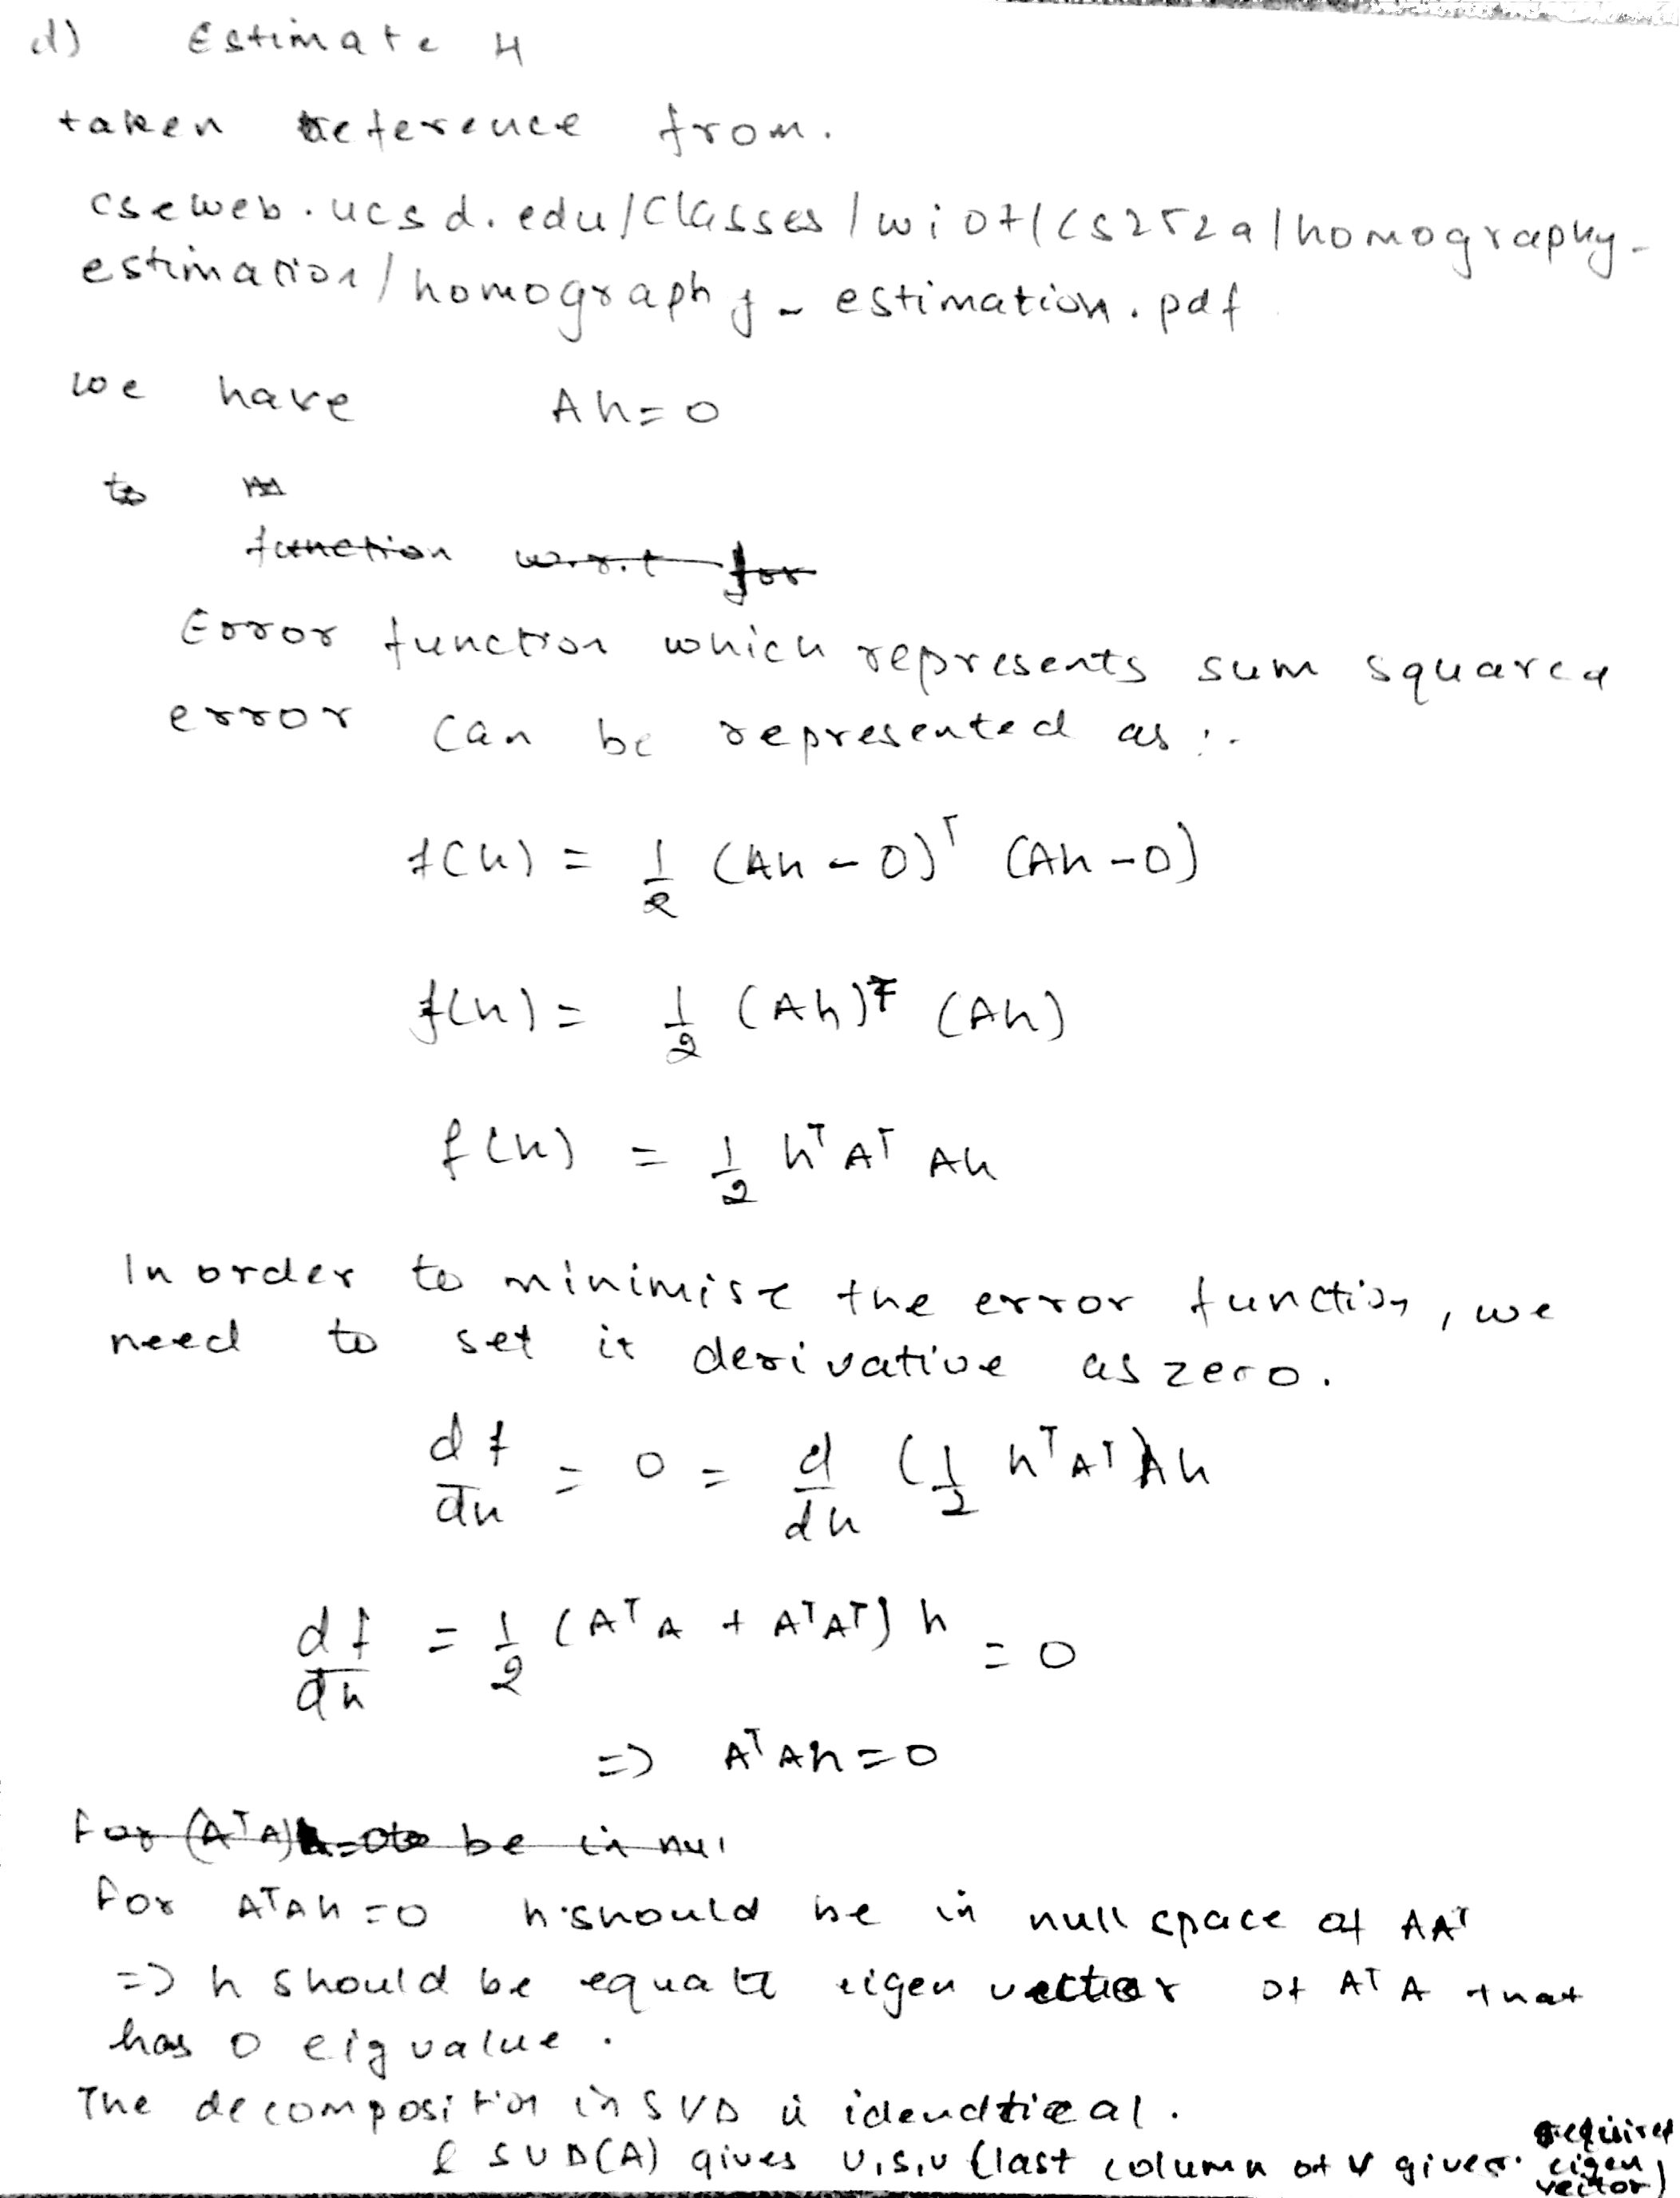 d) Estimate H
taken reference from.
cseweb.ucsd.edu/Classes/wi07/cs252a/homography-
estimation/homography-estimation.pdf
we have Ah=0
to
function w.r.t for
Error function which represents sum squared
error can be represented as :-
f(h) = 1/2 (Ah - 0)ᵀ (Ah - 0)
f(h) = 1/2 (Ah)ᵀ (Ah)
f(h) = 1/2 hᵀAᵀ Ah
In order to minimise the error function, we
need to set it derivative as zero.
df/dh = 0 = d/dh (1/2 hᵀAᵀ)Ah
df/dh = 1/2 (AᵀA + AᵀAᵀ) h = 0
=> AᵀAh=0
for (AᵀA)h=0 to be in nul
for AᵀAh=0 h should be in null space of AAᵀ
=> h should be equal to eigen vector of AᵀA that
has 0 eig value.
The decomposition in SVD is idendtical.
& SVD(A) gives U,S,V (last column of V gives required
eigen
vector)